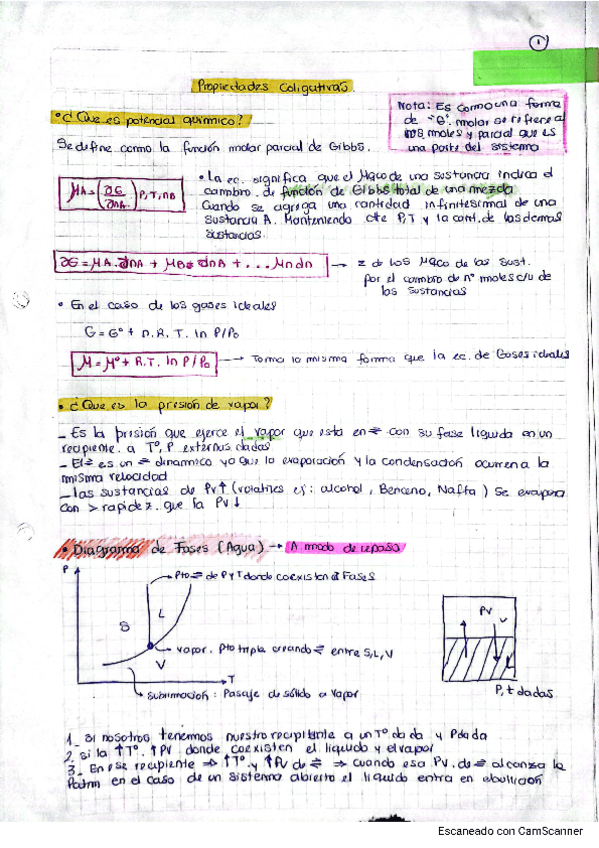 1
Propiedades Coligativas.
• ¿Que es potencial quimico?
Nota: Es como una forma
de "G". molar se refiere al
nos. moles y parcial que es
una parte del sistema
Se define como la función molar parcial de Gibbs.
μA = (∂G/∂nA) P,T,nB
• la ec. significa que el μaco de una sustancia indica el
cambio de función de Gibbs total de una mezcla
Cuando se agrega una cantidad infinitesimal de una
Sustancia A. Manteniendo cte P,T y la cant. de las demas
sustancias.
∂G = μA. dnA + μB. dnA + ... μn dn → Σ de los μaco de las sust.
por el cambio de n° moles c/u de
las sustancias
• En el caso de los gases ideales
G = G° + n.R.T. ln P/Po
μ = μ° + R.T. ln P/Po → Toma la misma forma que la ec. de Gases ideales
• ¿Que es la presión de vapor?
_ Es la presión que ejerce el vapor que esta en ⇌ con su fase liquida en un
recipiente a T°, P externas dadas
_ El ⇌ es un ⇌ dinamico ya que la evaporación y la condensación ocurren a la
misma velocidad
_ las sustancias de Pv↑ (volatiles ej: alcohol, Benceno, Nafta) Se evapora
con > rapidez. que la PV↓
• Diagrama de Fases (Agua) → A modo de repaso
P
Pto ⇌ de P y T donde coexisten 2 Fases
S
L
vapor. Pto triple cuando ⇌ entre S,L,V
V
T
sublimación: Pasaje de sólido a vapor
PV
P, t dadas
1_ Si nosotros tenemos nuestro recipiente a un T° dada y P dada
2_ si la ↑T°. ↑PV donde coexisten el liquido y el vapor
3_ En ese recipiente ⇒ ↑T° y ↑PV de ⇌ ⇒ cuando esa PV. de ⇌ alcanza la
Patm en el caso de un sistema abierto el liquido entra en ebullición
Escaneado con CamScanner